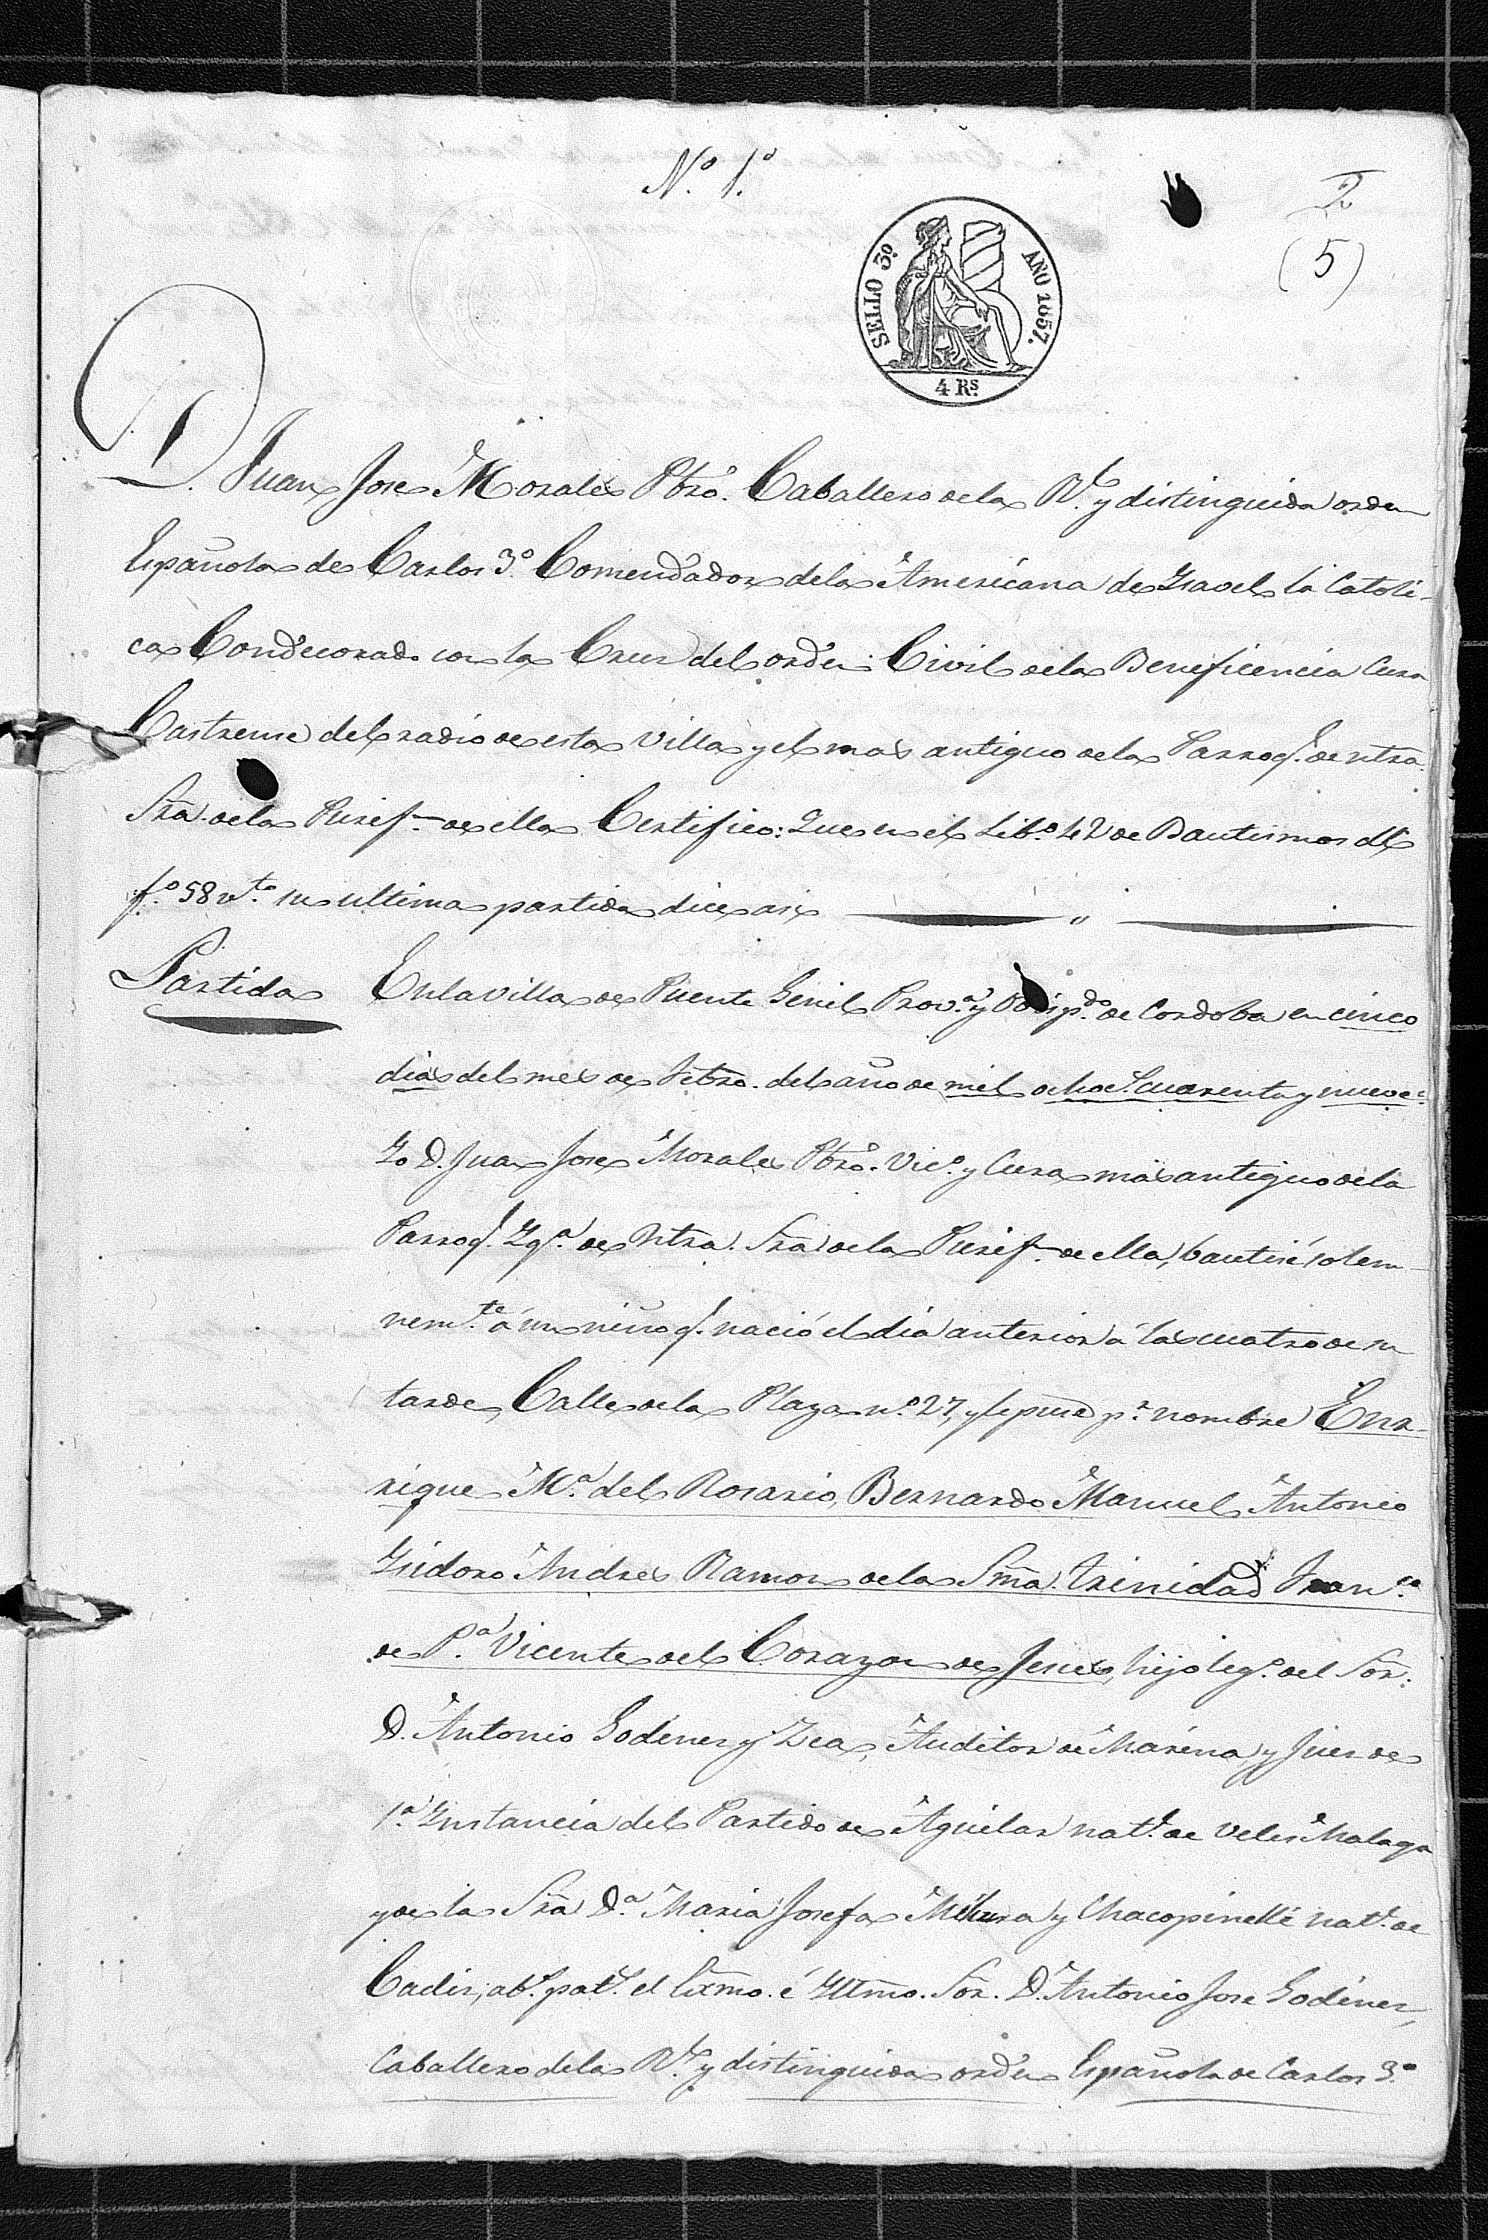 Nº. 1º.
2
(5)
SELLO 3º. AÑO 1857.
4 Rs.
D. Juan Jose Morales Pbro. Caballero de la Rl. y distinguida orden
Española de Carlos 3º. Comendador de la Americana de Ysavel la Catoli-
ca Condecorado con la Cruz del orden Civil de la Beneficencia Cura
Castrense del radio de esta Villa y el mas antiguo de la Parroql. de ntra.
Sra. de la Purifn. de ella Certifico: Que en el Libº. 42 de Bautismos al
fº. 58 vtº. su ultima partida dice asi
Partida
En la villa de Puente Genil Provª. y Obispdº. de Cordoba en cinco
dias del mes de Febro. del año de mil ochocs. cuarenta y nueve:
Yo D. Juan Jose Morales Pbro. Vicº. y Cura mas antiguo de la
Parroql. Ygª. de Ntra. Sra. de la Purifn. de ella, bautisé solem-
nemte. á un niño q. nació el dia anterior á las cuatro de su
tarde, Calle de la Plaza nº. 27, y le puse pr. nombre Enr-
rique Mª. del Rosario, Bernardo Manuel Antonio
Ysidoro Andres Ramon de la Sma. Trinidad Franco.
de Pª. Vicente del Corazon de Jesus, hijo legº. del Sor.
D. Antonio Godinez y Zea, Auditor de Marina, y Juez de
1ª. Ynstancia del Partido de Aguilar natl. de Velez Malaga
y de la Sra. Dª. Maria Josefa Mihura y Chacopinelli natl. de
Cadiz, abs. pats. el Exmo. é Yltmo. Sor. D. Antonio Jose Godinez,
Caballero de la Rl. y distinguida orden Española de Carlos 3º.